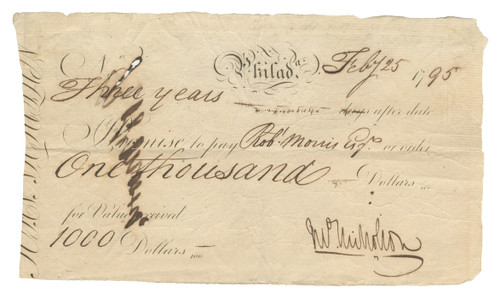 No
Philada. Feby 25 1795
Three years days after date
I Promise, to pay Robt Morris Esqr. or order
One thousand Dollars
for Value received
1000 Dollars
Jno Nicholson